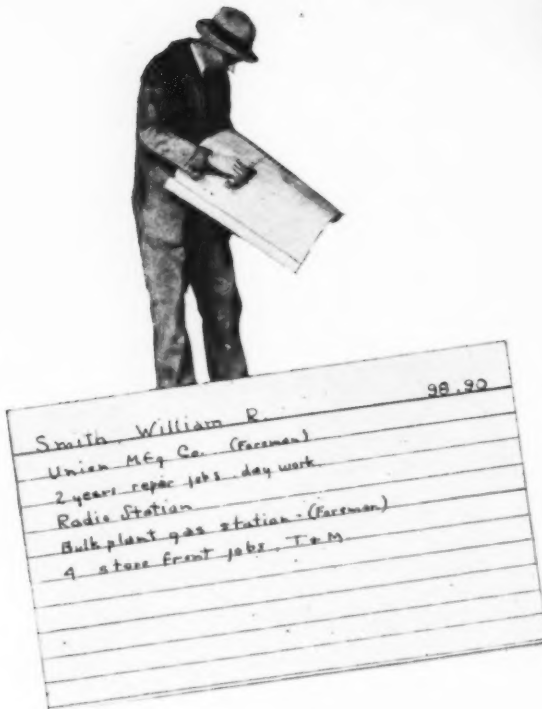 Smith, William R. 98.90
Union Mfg Co. (Foreman)
2 years repair jobs. day work.
Radio Station
Bulk plant gas station - (Foreman)
4 store front jobs. T & M